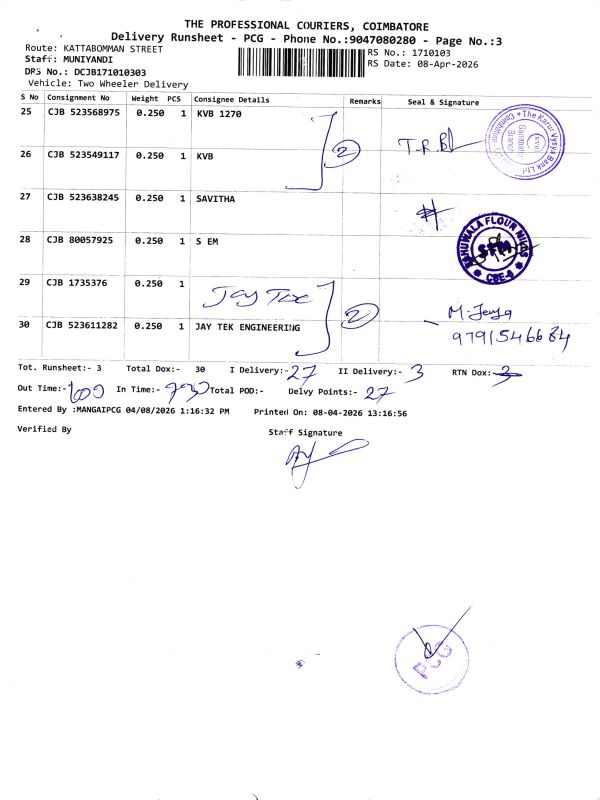 THE PROFESSIONAL COURIERS, COIMBATORE
Delivery Runsheet - PCG - Phone No.:9047080280 - Page No.:3
Route: KATTABOMMAN STREET
Staff: MUNIYANDI
DRS No.: DCJB171010303
Vehicle: Two Wheeler Delivery
RS No.: 1710103
RS Date: 08-Apr-2026
S No Consignment No Weight PCS Consignee Details Remarks Seal & Signature
25 CJB 523568975 0.250 1 KVB 1270
2
The Karur Vysya Bank Ltd
26 CJB 523549117 0.250 1 KVB
27 CJB 523638245 0.250 1 SAVITHA
28 CJB 80057925 0.250 1 S EM
FLOUR MILLS
SFM
CBE-
29 CJB 1735376 0.250 1 Jay Tex
2
30 CJB 523611282 0.250 1 JAY TEK ENGINEERING
Tot. Runsheet:- 3 Total Dox:- 30 I Delivery:- 27 II Delivery:- 3 RTN Dox:- 3
Out Time:- In Time:- 730 Total POD:- Delvy Points:- 27
Entered By :MANGAIPCG 04/08/2026 1:16:32 PM Printed On: 08-04-2026 13:16:56
Verified By Staff Signature
PCG